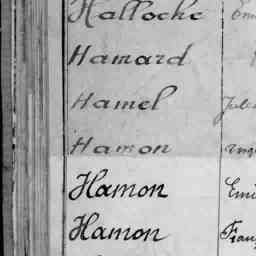 Hallocke Em
Hamard
Hamel Jule
Hamon
Hamon Emi
Hamon Fran